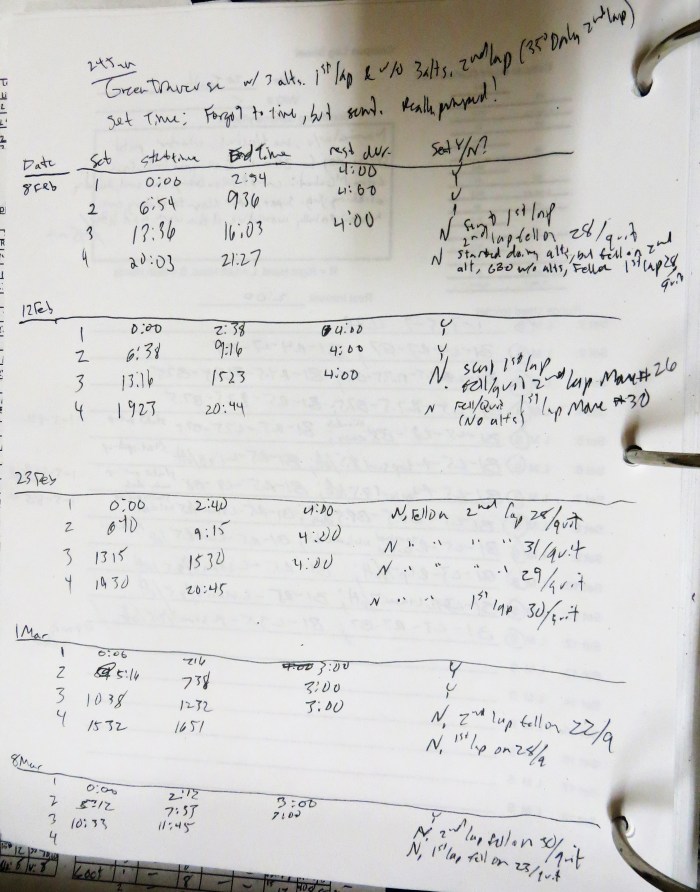 Green Traverse w/ 3 alts. 1st lap & w/o 3 alts. 2nd lap (35° Only 2nd lap)
Set Time: Forgot to time, but send. Really pumped!
Date Set start time End Time rest dur. Sent Y/N?
8 Feb 1 0:00 2:54 4:00 Y
2 6:54 936 4:00 Y
3 13:36 16:03 4:00 N sent 1st lap
2nd lap fell on 28/quit
4 20:03 21:27 N started doing alts, but fell on 2nd
alt, GBO w/o alts, Fell on 1st lap 28/
quit
12 Feb
1 0:00 2:38 4:00 Y
2 6:38 9:16 4:00 Y
3 13:16 1523 4:00 N. sent 1st lap
fell/quit 2nd lap Move #26
4 1923 20:44 N Fell/Quit 1st lap Move #30
(No alts)
23 Feb
1 0:00 2:40 4:00 N, Fell on 2nd lap 28/quit
2 640 9:15 4:00 N " " " " 31/quit
3 1315 1530 4:00 N " " " " 29/quit
4 1930 20:45 N " " 1st lap 30/quit
1 Mar
1 0:00 216 3:00 Y
2 5:16 738 3:00 Y
3 1038 1232 3:00 N, 2nd lap fell on 22/q
4 1532 1651 N, 1st lap on 28/q
8 Mar
1 0:00 2:12 3:00 Y
2 5:12 7:33 N, 2nd lap fell on 30/quit
3 10:33 11:45 N, 1st lap fell on 23/quit
4